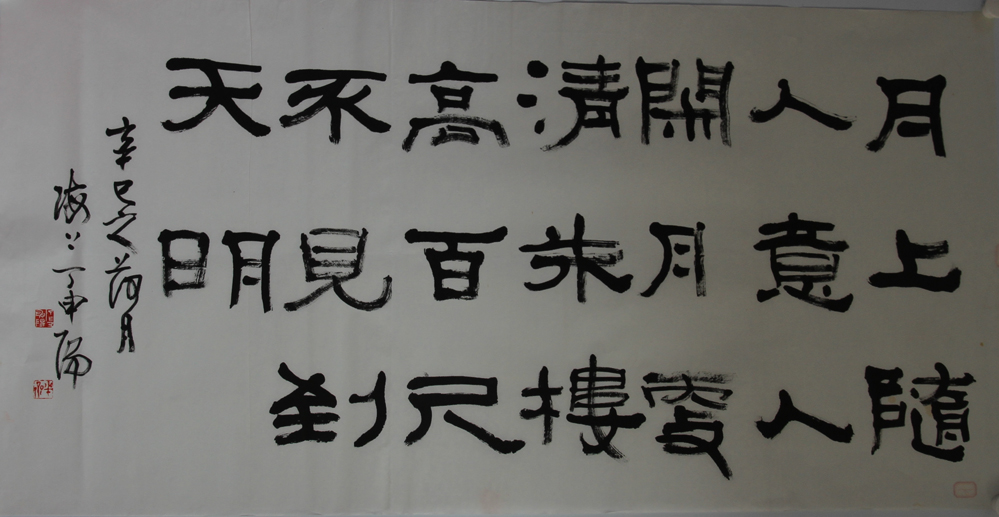 月上隨
人意人
開月更
清朱樓
高百尺
不見到
天明
辛巳之荷月
海上丁申陽